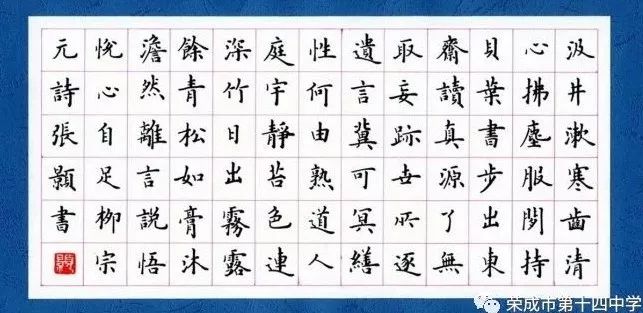 汲井漱寒齒清
心拂塵服閒持
貝葉書步出東
齋讀真源了無
取妄跡世所逐
遺言冀可冥繕
性何由熟道人
庭宇靜苔色連
深竹日出霧露
餘青松如膏沐
澹然離言說悟
悅心自足柳宗
元詩張顥書
荣成市第十四中学